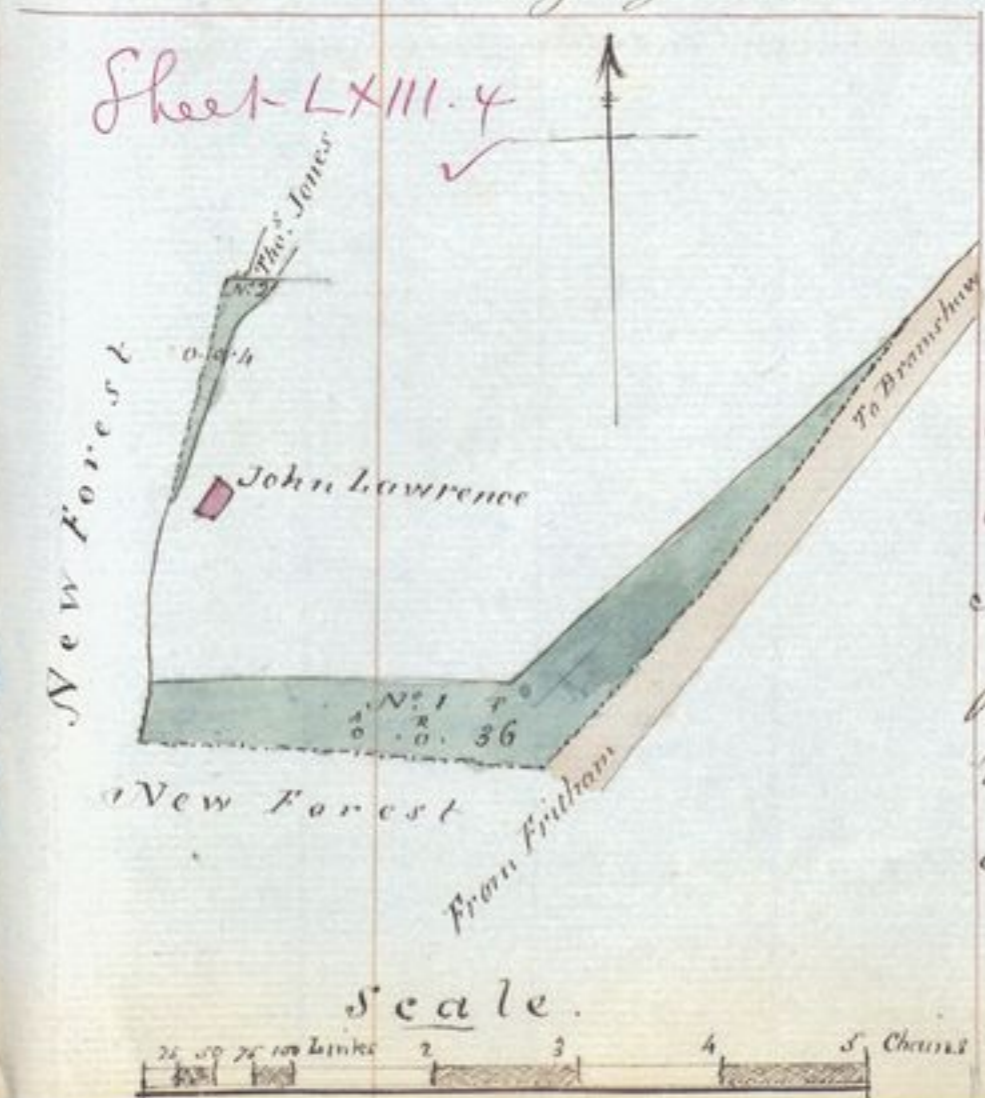 Sheet LXIII.4
Thoˢ Jones
Nº 2
0.0.4
New Forest
John Lawrence
To Bramshaw
Nº 1
A R P
0 . 0 . 36
New Forest
From Fritham
Scale.
25 50 75 100 Links 2 3 4 5 Chains